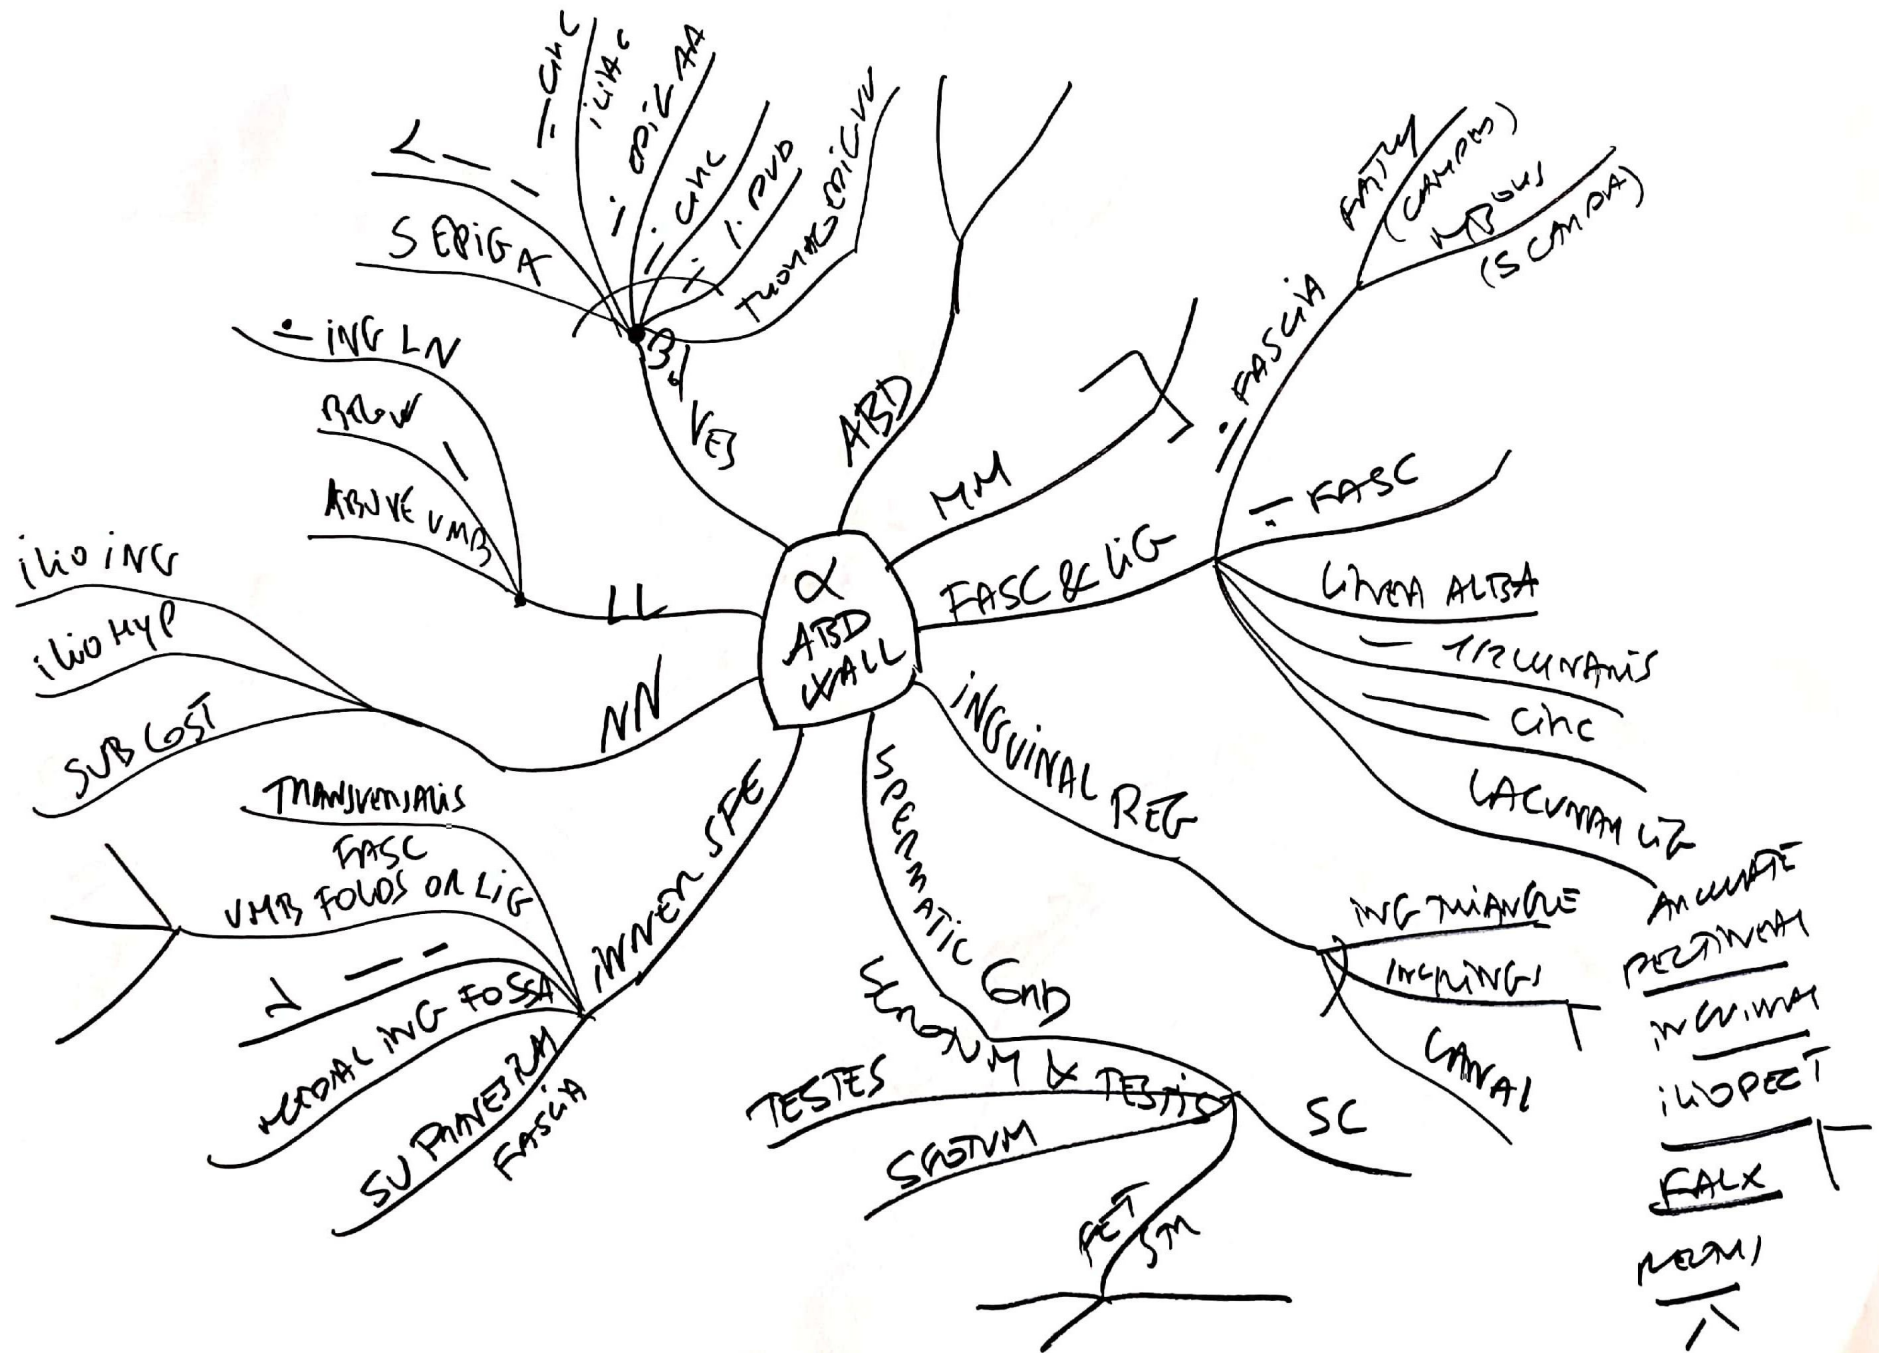 α
ABD
WALL
ABD
MM
FASC & LiG
FASCIA
FATTY
(CAMPER)
(SCARPA)
FASC
LINEA ALBA
CIRC
LACUNAR LIG
ARCUATE
PECTINEAL
INGUINAL
iLIOPECT
FALX
iNGUINAL REG
ING TRIANGLE
ING RINGS
CANAL
SPERMATIC CORD
SCROTUM & TESTIS
SC
TESTES
SCROTUM
iNNER SFE
TRANSVERSALIS
FASC
UMB FOLDS OR LIG
MEDIAL ING FOSSA
FASCIA
NN
iLIO iNG
iLIO HYP
SUB COST
LL
iNG LN
BELOW
ABOVE UMB
VES
S EPIG A
CIRC
ILIAC
EPIG AA
CIRC
PUD
THORACOEPIG VV